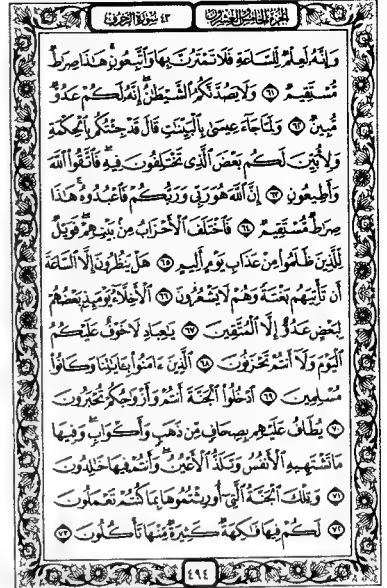 الجزء الخامس والعشرون
٤٣ سورة الزخرف
وَإِنَّهُۥ لَعِلْمٌ لِّلسَّاعَةِ فَلَا تَمْتَرُنَّ بِهَا وَٱتَّبِعُونِ ۚ هَٰذَا صِرَٰطٌ
مُّسْتَقِيمٌ ٦١ وَلَا يَصُدَّنَّكُمُ ٱلشَّيْطَٰنُ ۖ إِنَّهُۥ لَكُمْ عَدُوٌّ
مُّبِينٌ ٦٢ وَلَمَّا جَآءَ عِيسَىٰ بِٱلْبَيِّنَٰتِ قَالَ قَدْ جِئْتُكُم بِٱلْحِكْمَةِ
وَلِأُبَيِّنَ لَكُم بَعْضَ ٱلَّذِى تَخْتَلِفُونَ فِيهِ ۖ فَٱتَّقُوا۟ ٱللَّهَ
وَأَطِيعُونِ ٦٣ إِنَّ ٱللَّهَ هُوَ رَبِّى وَرَبُّكُمْ فَٱعْبُدُوهُ ۚ هَٰذَا
صِرَٰطٌ مُّسْتَقِيمٌ ٦٤ فَٱخْتَلَفَ ٱلْأَحْزَابُ مِنۢ بَيْنِهِمْ ۖ فَوَيْلٌ
لِّلَّذِينَ ظَلَمُوا۟ مِنْ عَذَابِ يَوْمٍ أَلِيمٍ ٦٥ هَلْ يَنظُرُونَ إِلَّا ٱلسَّاعَةَ
أَن تَأْتِيَهُم بَغْتَةً وَهُمْ لَا يَشْعُرُونَ ٦٦ ٱلْأَخِلَّآءُ يَوْمَئِذٍۭ بَعْضُهُمْ
لِبَعْضٍ عَدُوٌّ إِلَّا ٱلْمُتَّقِينَ ٦٧ يَٰعِبَادِ لَا خَوْفٌ عَلَيْكُمُ
ٱلْيَوْمَ وَلَآ أَنتُمْ تَحْزَنُونَ ٦٨ ٱلَّذِينَ ءَامَنُوا۟ بِـَٔايَٰتِنَا وَكَانُوا۟
مُسْلِمِينَ ٦٩ ٱدْخُلُوا۟ ٱلْجَنَّةَ أَنتُمْ وَأَزْوَٰجُكُمْ تُحْبَرُونَ
٧٠ يُطَافُ عَلَيْهِم بِصِحَافٍ مِّن ذَهَبٍ وَأَكْوَابٍ ۖ وَفِيهَا
مَا تَشْتَهِيهِ ٱلْأَنفُسُ وَتَلَذُّ ٱلْأَعْيُنُ ۖ وَأَنتُمْ فِيهَا خَٰلِدُونَ
٧١ وَتِلْكَ ٱلْجَنَّةُ ٱلَّتِىٓ أُورِثْتُمُوهَا بِمَا كُنتُمْ تَعْمَلُونَ
٧٢ لَكُمْ فِيهَا فَٰكِهَةٌ كَثِيرَةٌ مِّنْهَا تَأْكُلُونَ ٧٣
٤٩٤